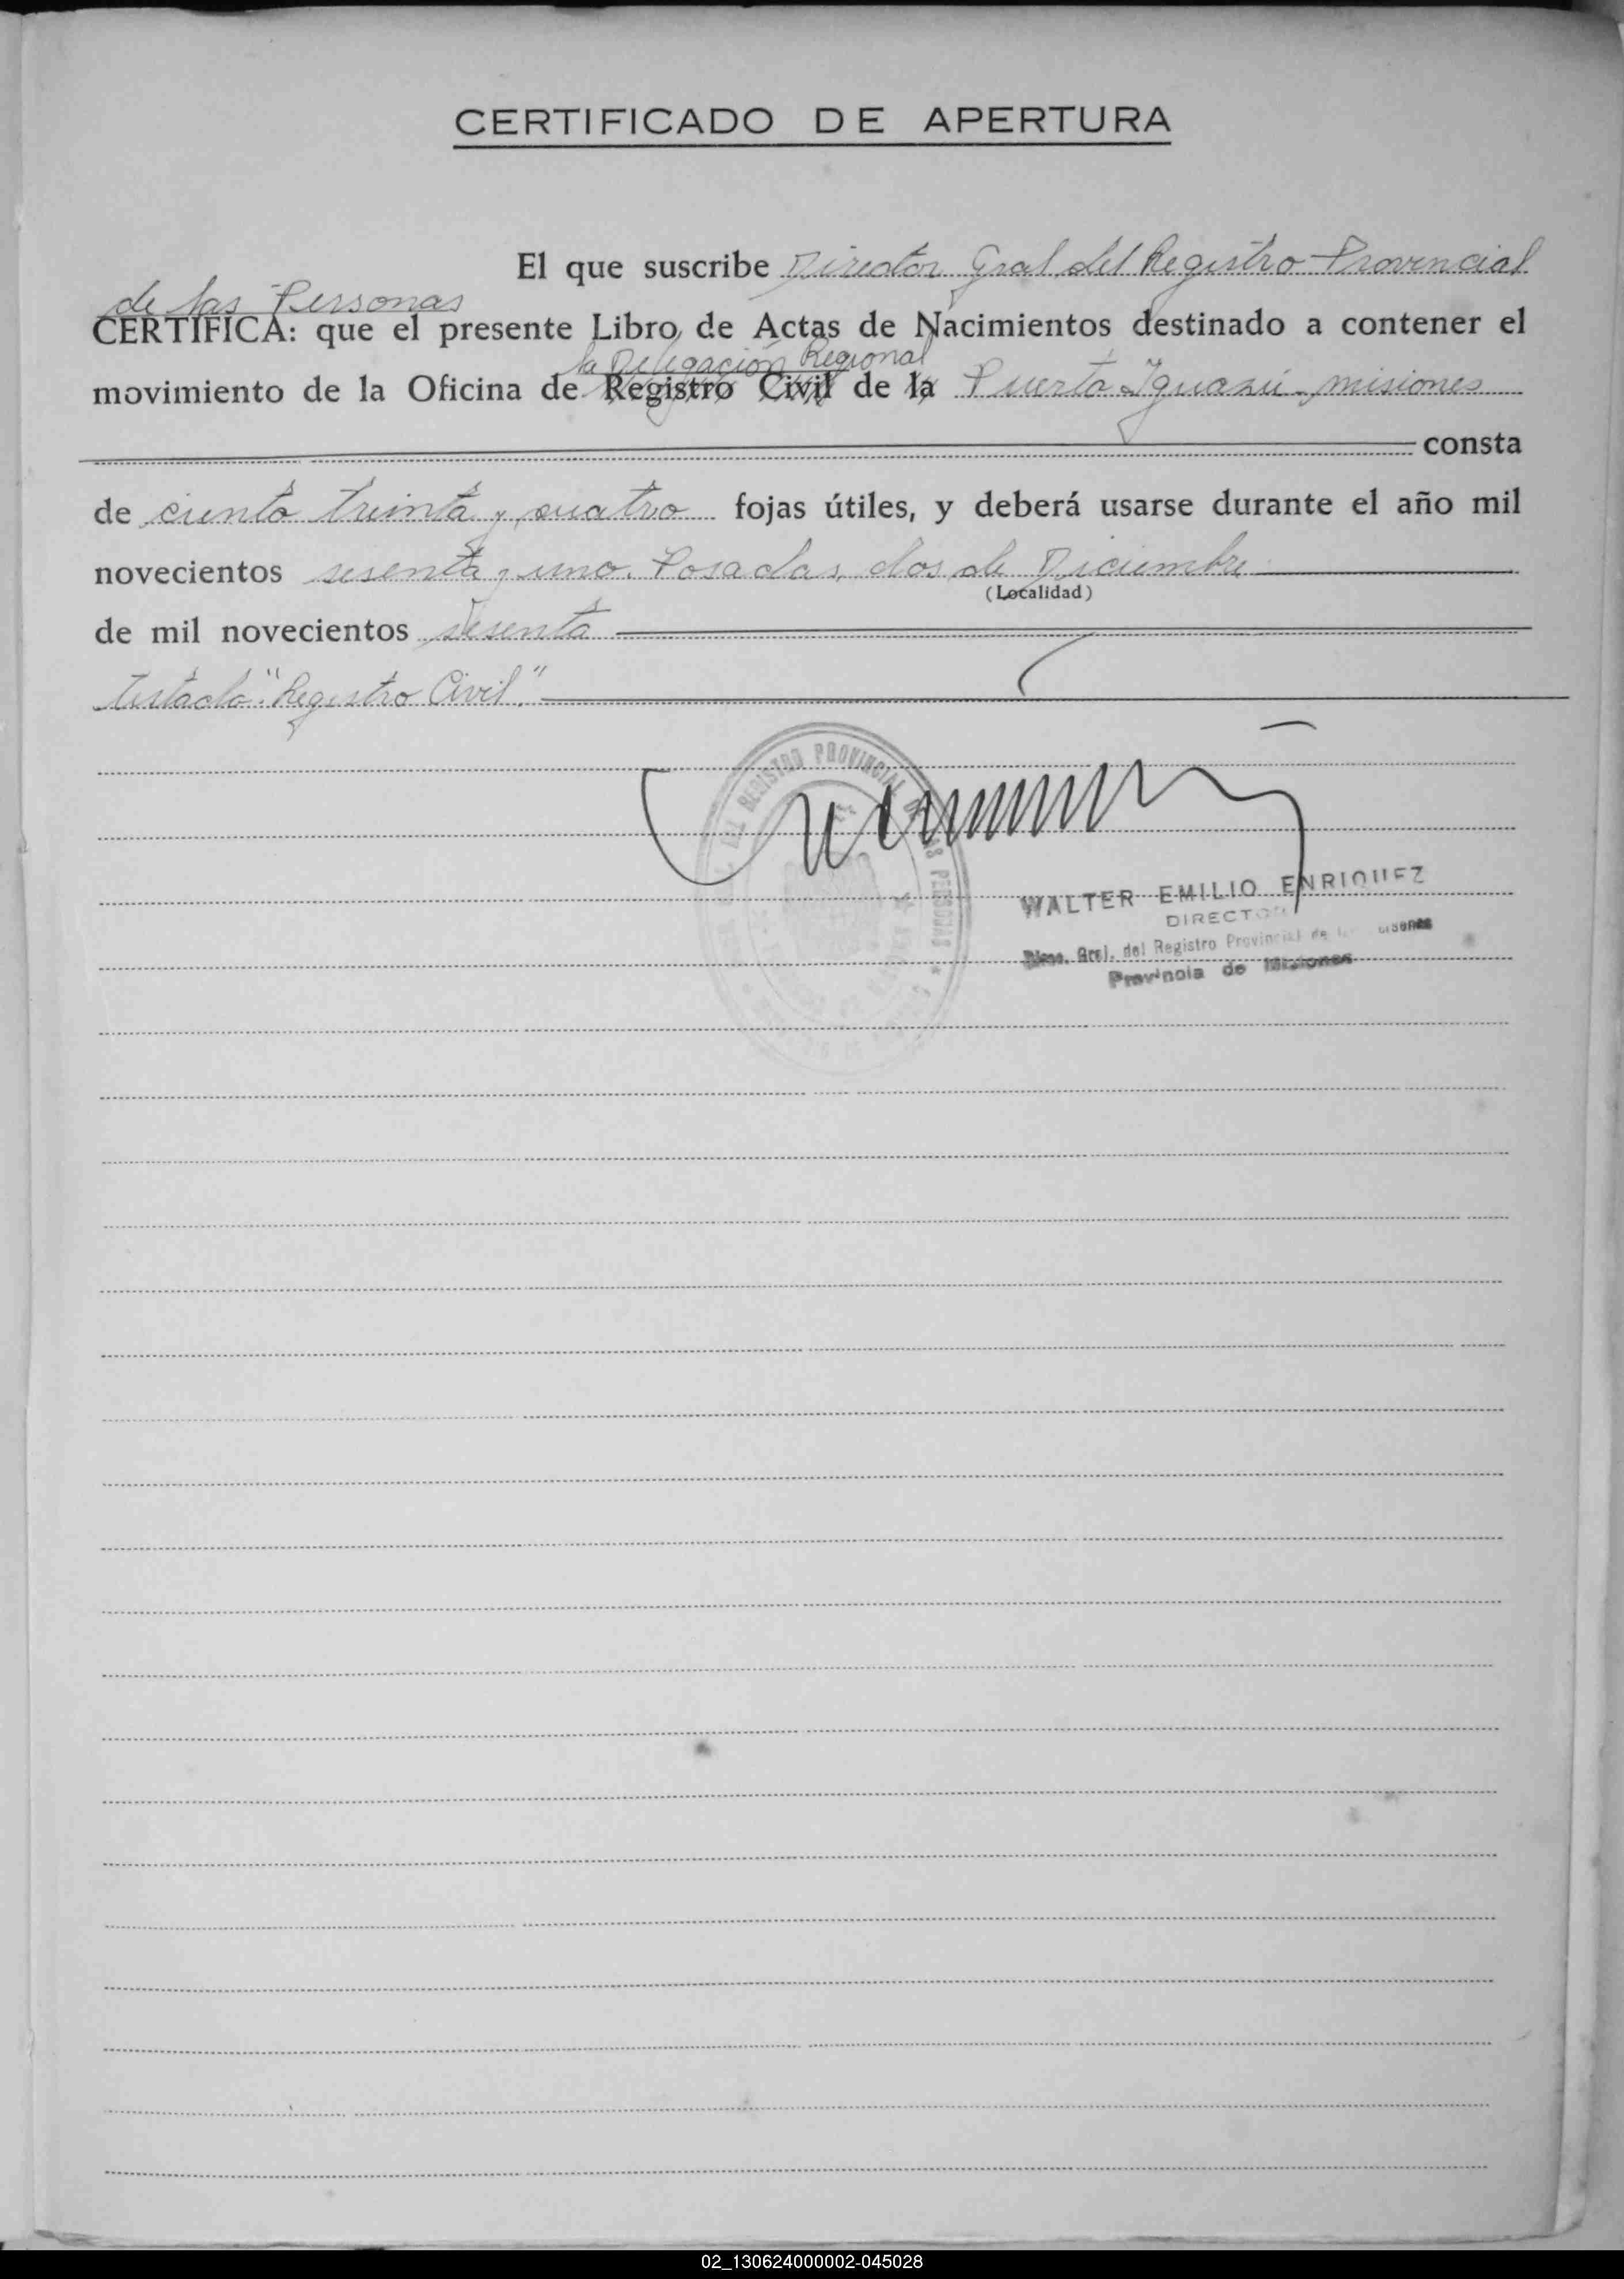 CERTIFICADO DE APERTURA
El que suscribe Director Gral del Registro Provincial
de las Personas
CERTIFICA: que el presente Libro de Actas de Nacimientos destinado a contener el
la Delegación Regional
movimiento de la Oficina de Registro Civil de la Puerto Iguazú - misiones
consta
de ciento treinta y cuatro fojas útiles, y deberá usarse durante el año mil
novecientos sesenta y uno. Posadas, dos de Diciembre
(Localidad)
de mil novecientos sesenta
Testado: "Registro Civil."
DEL REGISTRO PROVINCIAL DE LAS PERSONAS
WALTER EMILIO ENRIQUEZ
DIRECTOR
Gral. del Registro Provincial de
Provincia de Misiones
02_130624000002-045028